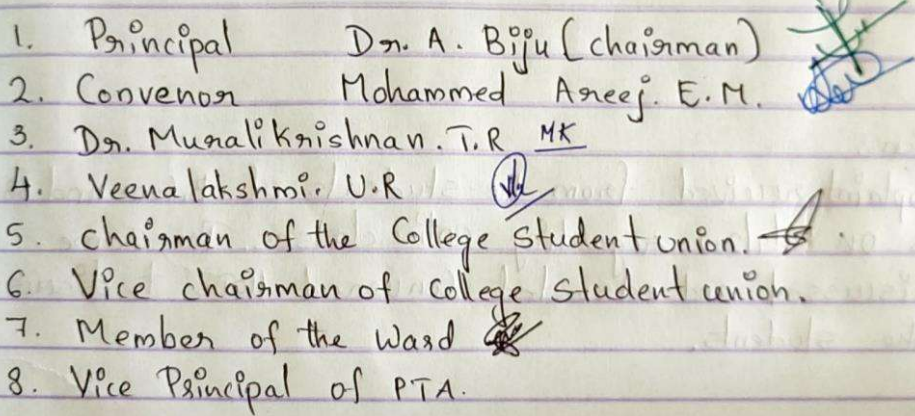 1. Principal Dr. A. Biju (chairman)
2. Convenor Mohammed Areej. E.M.
3. Dr. Muralikrishnan. T.R MK
4. Veenalakshmi. U.R
5. chairman of the College student union.
6. Vice chairman of College student union.
7. Member of the Ward
8. Vice Principal of PTA.